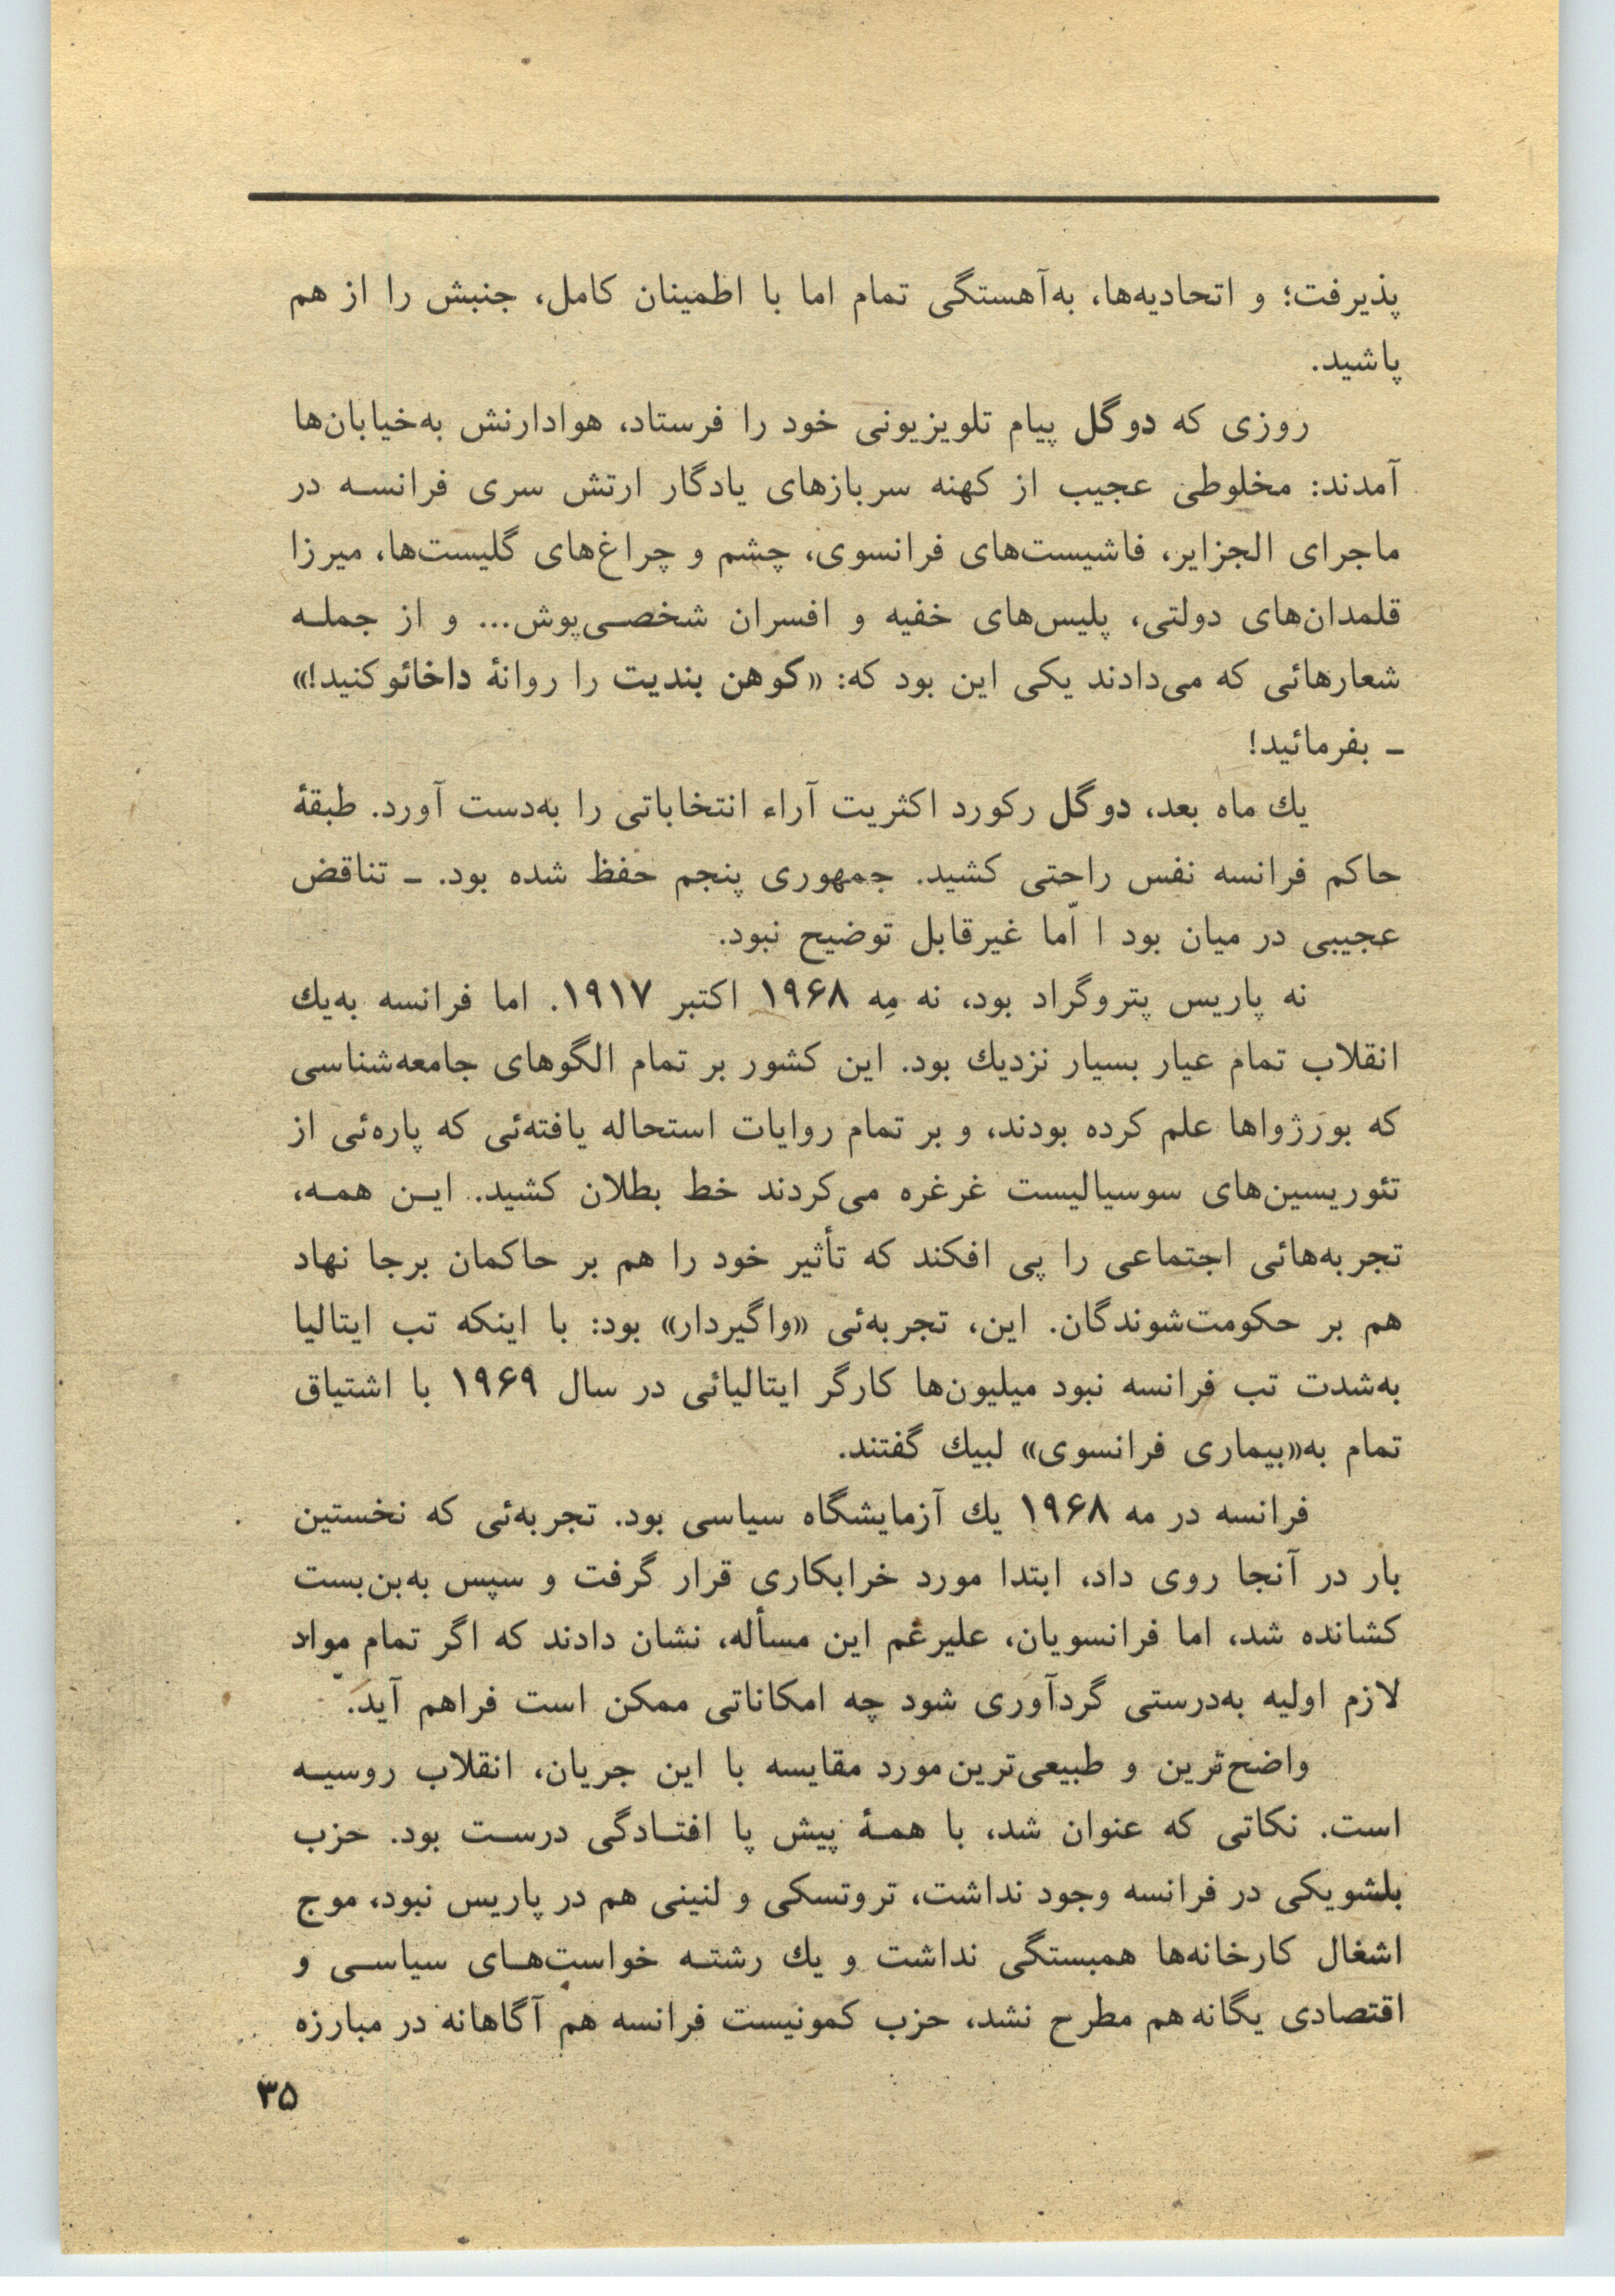 پذیرفت؛ و اتحادیه‌ها، به‌آهستگی تمام اما با اطمینان کامل، جنبش را از هم
پاشید.
روزی که دوگل پیام تلویزیونی خود را فرستاد، هوادارنش به‌خیابان‌ها
آمدند: مخلوطی عجیب از کهنه سربازهای یادگار ارتش سری فرانسه در
ماجرای الجزایر، فاشیست‌های فرانسوی، چشم و چراغ‌های گلیست‌ها، میرزا
قلمدان‌های دولتی، پلیس‌های خفیه و افسران شخصی‌پوش... و از جمله
شعارهائی که می‌دادند یکی این بود که: «کوهن بندیت را روانهٔ داخائو کنید!»
ـ بفرمائید!
یك ماه بعد، دوگل رکورد اکثریت آراء انتخاباتی را به‌دست آورد. طبقهٔ
حاکم فرانسه نفس راحتی کشید. جمهوری پنجم حفظ شده بود. ـ تناقض
عجیبی در میان بود ا امّا غیرقابل توضیح نبود.
نه پاریس پتروگراد بود، نه مِه ۱۹۶۸ اکتبر ۱۹۱۷. اما فرانسه به‌یك
انقلاب تمام عیار بسیار نزدیك بود. این کشور بر تمام الگوهای جامعه‌شناسی
که بورژواها علم کرده بودند، و بر تمام روایات استحاله یافته‌ئی که پاره‌ئی از
تئوریسین‌های سوسیالیست غرغره می‌کردند خط بطلان کشید. این همه،
تجربه‌هائی اجتماعی را پی افکند که تأثیر خود را هم بر حاکمان برجا نهاد
هم بر حکومت‌شوندگان. این، تجربه‌ئی «واگیردار» بود: با اینکه تب ایتالیا
به‌شدت تب فرانسه نبود میلیون‌ها کارگر ایتالیائی در سال ۱۹۶۹ با اشتیاق
تمام به«بیماری فرانسوی» لبیك گفتند.
فرانسه در مه ۱۹۶۸ یك آزمایشگاه سیاسی بود. تجربه‌ئی که نخستین
بار در آنجا روی داد، ابتدا مورد خرابکاری قرار گرفت و سپس به‌بن‌بست
کشانده شد، اما فرانسویان، علیرغم این مسأله، نشان دادند که اگر تمام مواد
لازم اولیه به‌درستی گردآوری شود چه امکاناتی ممکن است فراهم آید.
واضح‌ترین و طبیعی‌ترین مورد مقایسه با این جریان، انقلاب روسیه
است. نکاتی که عنوان شد، با همهٔ پیش پا افتادگی درست بود. حزب
بلشویکی در فرانسه وجود نداشت، تروتسکی و لنینی هم در پاریس نبود، موج
اشغال کارخانه‌ها همبستگی نداشت و یك رشته خواست‌های سیاسی و
اقتصادی یگانه هم مطرح نشد، حزب کمونیست فرانسه هم آگاهانه در مبارزه
۳۵